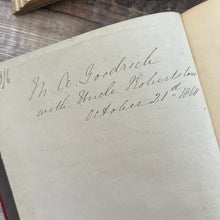 M. A. Goodrich
with Uncle Robert's love
October 21st 1868